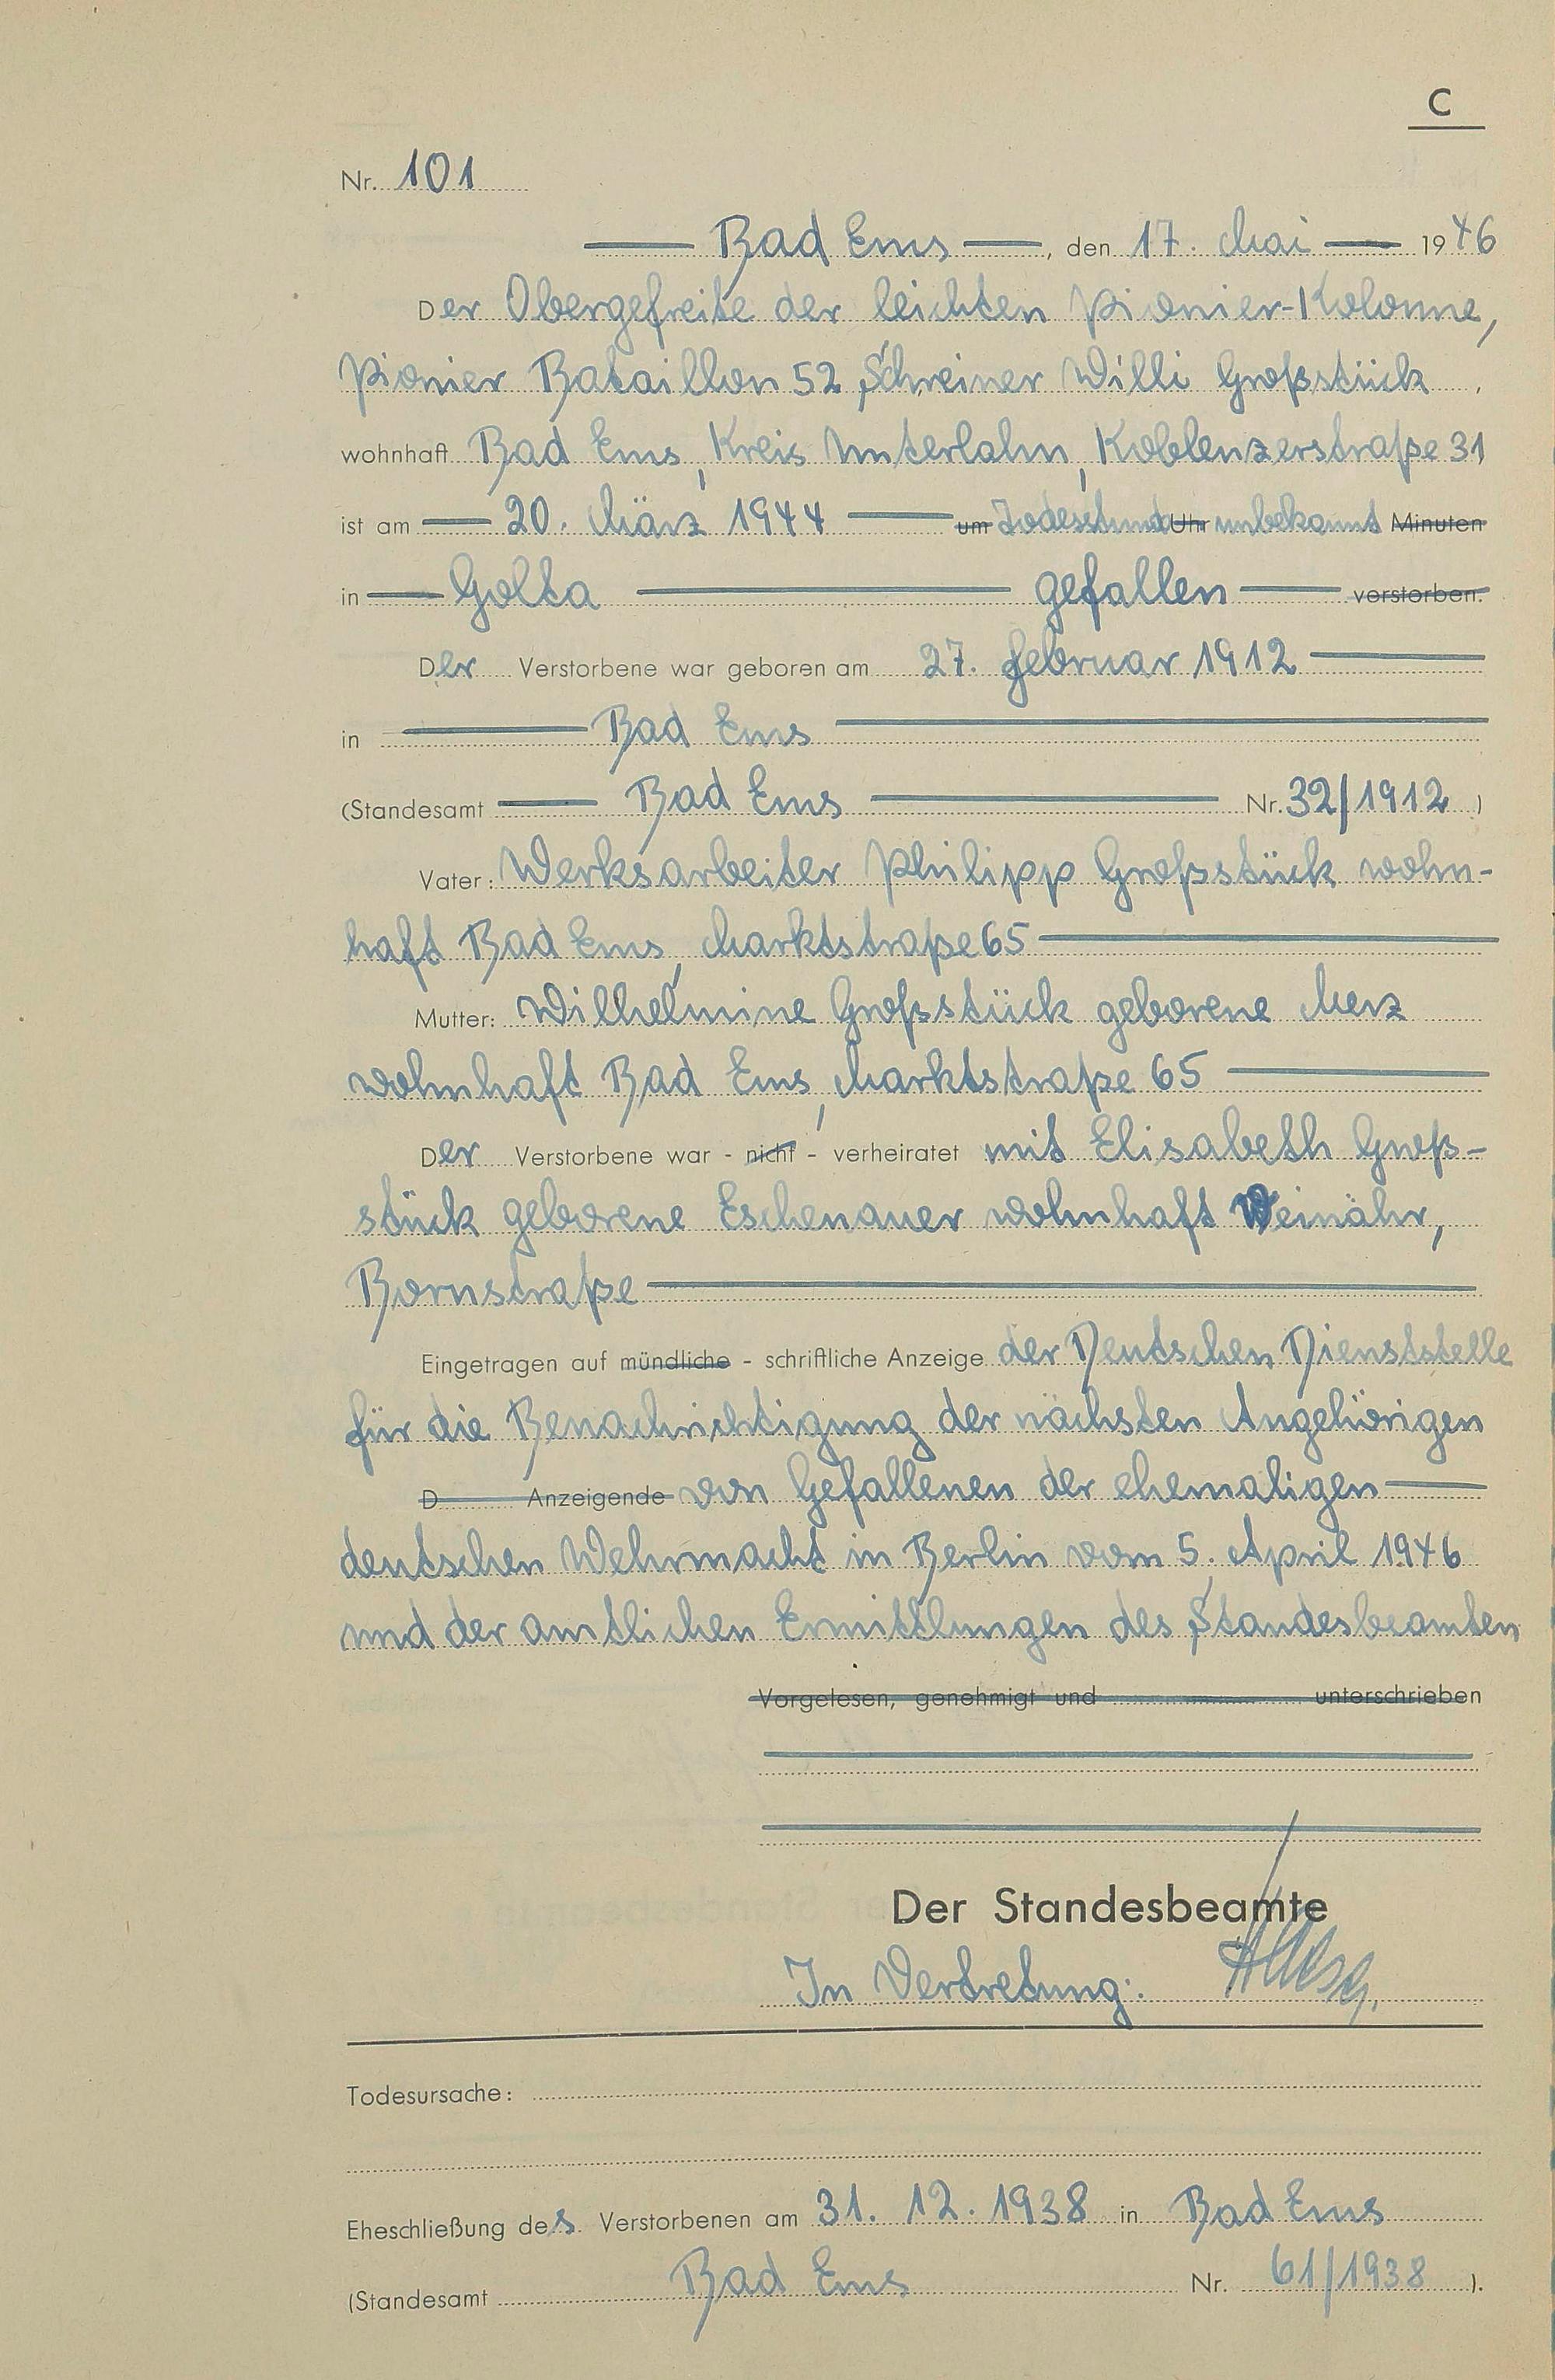 C
Nr. 101
Bad Ems, den 17. Mai 1946
Der Obergefreite der leichten Pionier-Kolonne,
Pionier Bataillon 52, Schreiner Willi Großstück,
wohnhaft Bad Ems, Kreis Unterlahn, Koblenzerstraße 31
ist am 20. März 1944 um Todesstunde Uhr unbekannt Minuten
in Golta gefallen verstorben.
Der Verstorbene war geboren am 27. Februar 1912
in Bad Ems
(Standesamt Bad Ems Nr. 32/1912)
Vater: Werksarbeiter Philipp Großstück wohn-
haft Bad Ems, Marktstraße 65
Mutter: Wilhelmine Großstück geborene Merz
wohnhaft Bad Ems, Marktstraße 65
Der Verstorbene war - nicht - verheiratet mit Elisabeth Groß-
stück geborene Eschenauer wohnhaft Weinähr,
Bornstraße
Eingetragen auf mündliche - schriftliche Anzeige der Deutschen Dienststelle
für die Benachrichtigung der nächsten Angehörigen
D Anzeigende von Gefallenen der ehemaligen
deutschen Wehrmacht in Berlin vom 5. April 1946
und der amtlichen Ermittlungen des Standesbeamten
Vorgelesen, genehmigt und unterschrieben
Der Standesbeamte
In Vertretung:
Todesursache:
Eheschließung des Verstorbenen am 31. 12. 1938 in Bad Ems
(Standesamt Bad Ems Nr. 61/1938).